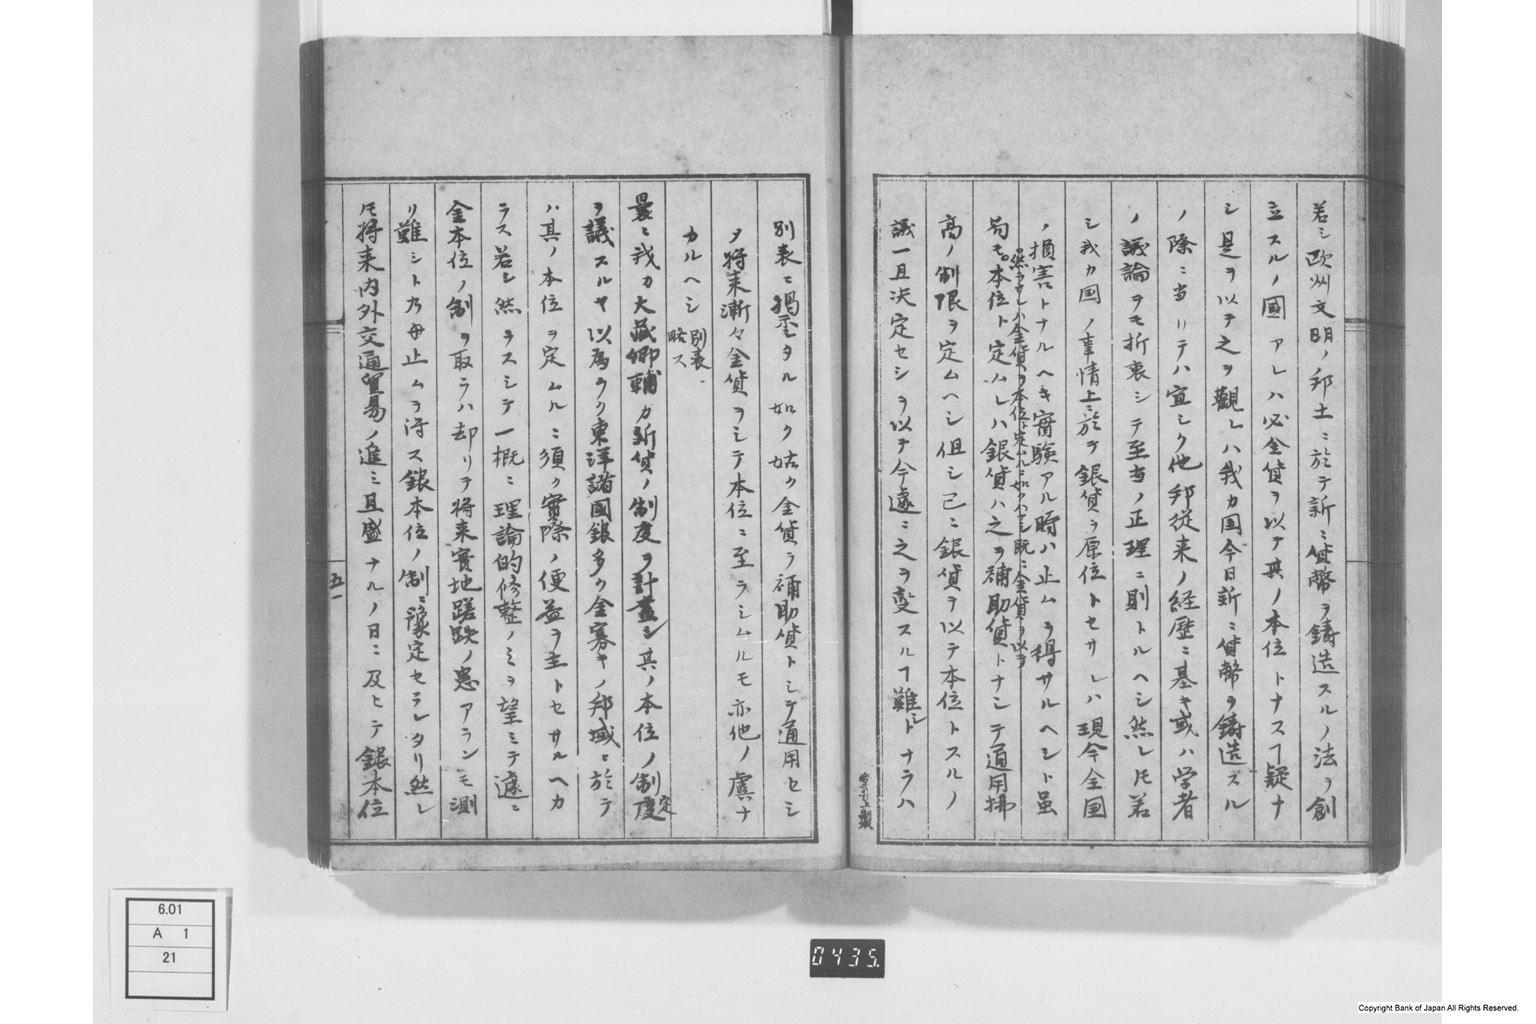 若シ欧州文明ノ邦土ニ於テ新ニ貨幣ヲ鋳造スルノ法ヲ創
立スルノ國アレハ必金貨ヲ以テ其ノ本位トナスヿ疑ナ
シ是ヲ以テ之ヲ觀レハ我カ国今日新ニ貨幣ヲ鋳造スル
ノ際ニ当リテハ宜シク他邦従来ノ経歴ニ基キ或ハ学者
ノ議論ヲモ折衷シテ至当ノ正理ニ則トルヘシ然レ𪜈若
シ我カ国ノ事情上ニ於テ銀貨ヲ原位トセサレハ現今全国
ノ損害トナルヘキ實驗アル時ハ止ムヲ得サルヘシト虽
然ラサレハ金貨ヲ本位ト定ムルニ如クハナシ既ニ金貨ヲ以テ
𪜈本位ト定ムレハ銀貨ハ之ヲ補助貨トナシテ通用拂
高ノ制限ヲ定ムヘシ但シ已ニ銀貨ヲ以テ本位トスルノ
議一旦决定セシヲ以テ今遽ニ之ヲ変スルヿ難シトナラハ
別表ニ掲蛋タル如ク姑ク金貨ヲ補助貨トシテ通用セシ
ヲ将来漸々金貨ヲシテ本位ニ至ラシムルモ亦他ノ虞ナ
カルヘシ 別表略ス
最ニ我カ大蔵卿輔カ新貨ノ制度ヲ計畫シ其ノ本位ノ制度定
ヲ議スルヤ以為ラク東洋諸國銀多ク金寡キノ邦域ニ於テ
ハ其ノ本位ヲ定ムルニ須ク實際ノ便益ヲ主トセサルヘカ
ラス若シ然ラスシテ一概ニ理論的修整ノミヲ望ミテ遽ニ
金本位ノ制ヲ取ラハ却リテ将来實地蹉跌ノ患アランモ測
リ難シト乃毋止ムヲ得ス銀本位ノ制ニ豫定セラレタリ然レ
𪜈将来内外交通貿易ノ進ミ且盛ナルノ日ニ及ヒテ銀本位
五一
6.01
A 1
21
0435.
Copyright Bank of Japan All Rights Reserved.